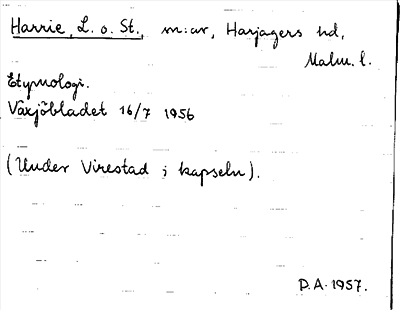 Harrie, L. o. St. m:ar, Harjagers hd,
Malm. l.
Etymologi.
Växjöbladet 16/7 1956
(Under Virestad i kapseln).
D.A. 1957.